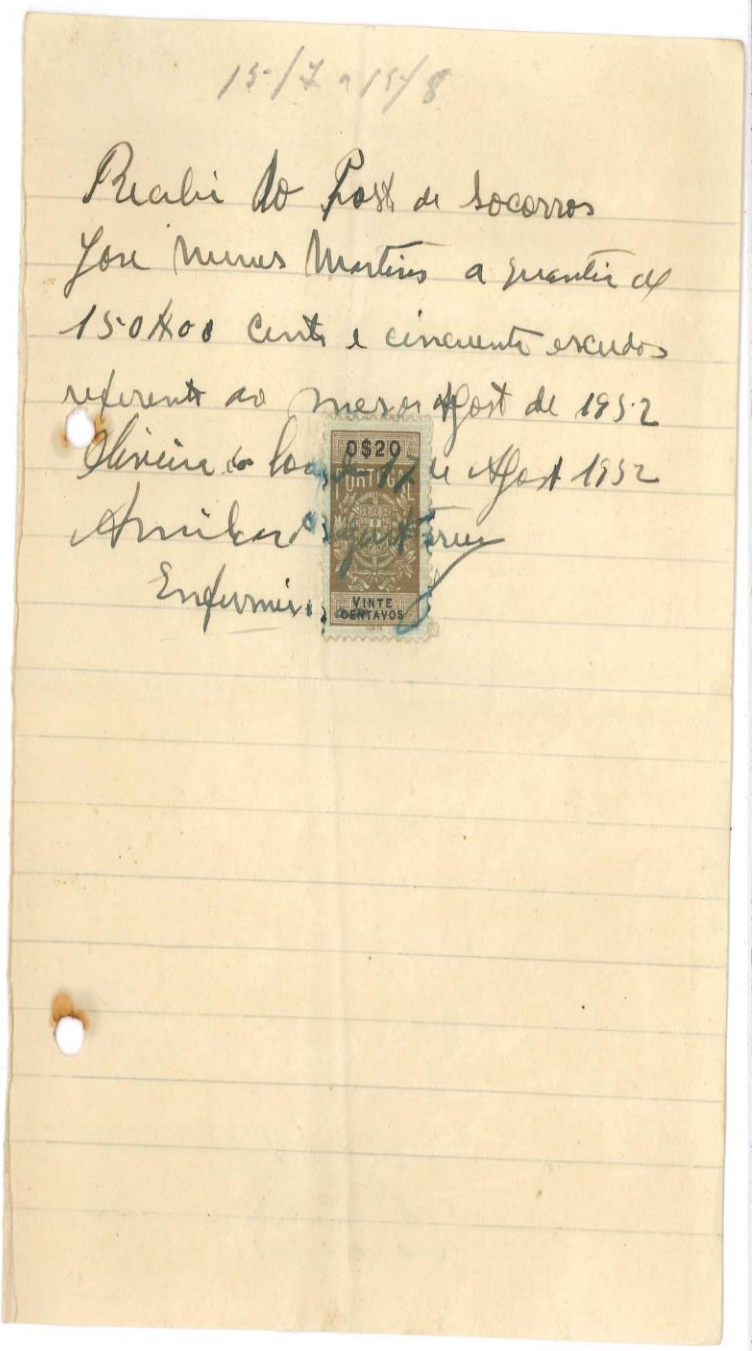 15/7 a 15/8
Recebi do Post de Socorros
José Nunes Martins a quantia de
150$00 Cento e cincuenta escudos
referente ao mes de Agost de 1952
0$20
Oliveira do de Agost 1952
PORTUGAL
Enfermeiro
VINTE
CENTAVOS